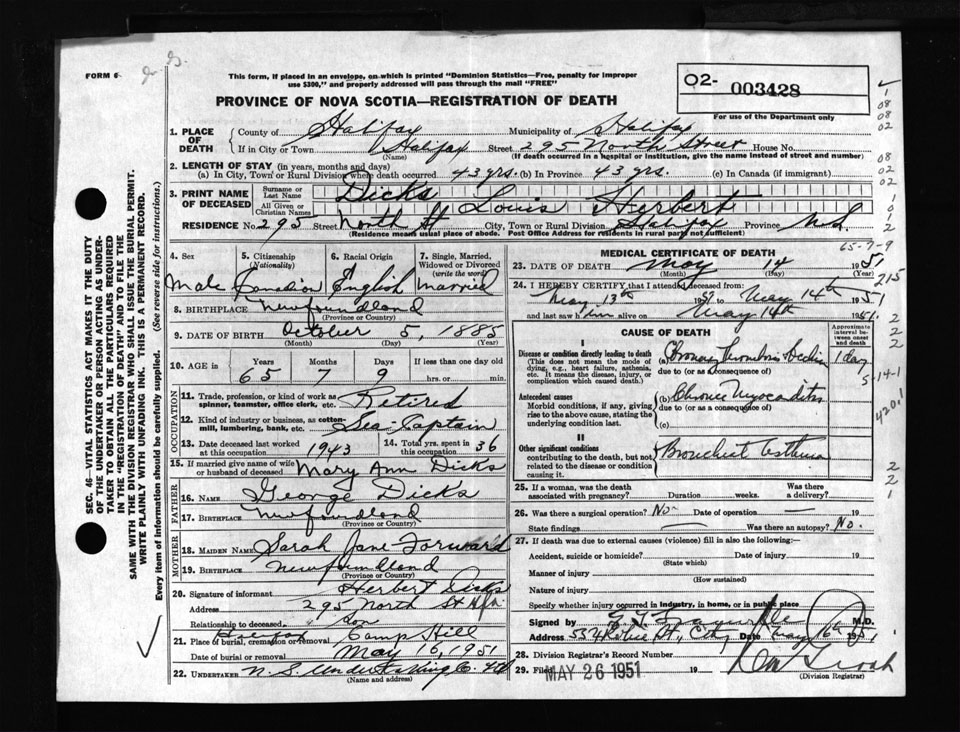 FORM 6
This form, if placed in an envelope, on which is printed "Dominion Statistics—Free, penalty for improper
use $300," and properly addressed will pass through the mail "FREE"
PROVINCE OF NOVA SCOTIA—REGISTRATION OF DEATH
O2- 003428
For use of the Department only
SEC. 46—VITAL STATISTICS ACT MAKES IT THE DUTY
OF THE UNDERTAKER OR PERSON ACTING AS UNDER-
TAKER TO OBTAIN ALL THE PARTICULARS REQUIRED
IN THE "REGISTRATION OF DEATH" AND TO FILE THE
SAME WITH THE DIVISION REGISTRAR WHO SHALL ISSUE THE BURIAL PERMIT.
WRITE PLAINLY WITH UNFADING INK. THIS IS A PERMANENT RECORD.
Every item of information should be carefully supplied. (See reverse side for instructions.)
1. PLACE OF DEATH County of Halifax Municipality of Halifax
If in City or Town Halifax Street 295 North Street House No.
(Name) (If death occurred in a hospital or institution, give the name instead of street and number)
2. LENGTH OF STAY (in years, months and days)
(a) In City, Town or Rural Division where death occurred 43 yrs. (b) In Province 43 yrs. (c) In Canada (if immigrant)
3. PRINT NAME OF DECEASED Surname or Last Name Dicks
All Given or Christian Names Louis Herbert
RESIDENCE No. 295 Street North St City, Town or Rural Division Halifax Province N.S.
(Residence means usual place of abode. Post Office Address for residents in rural part not sufficient)
4. Sex 5. Citizenship (Nationality) 6. Racial Origin 7. Single, Married, Widowed or Divorced (write the word)
Male Canadian English Married
8. BIRTHPLACE Newfoundland
(Province or Country)
9. DATE OF BIRTH October 5, 1885
(Month) (Day) (Year)
10. AGE in Years Months Days If less than one day old
65 7 9 hrs. or min.
OCCUPATION
11. Trade, profession, or kind of work as spinner, teamster, office clerk, etc. Retired
12. Kind of industry or business, as cotton-mill, lumbering, bank, etc. Sea Captain
13. Date deceased last worked at this occupation 1943 14. Total yrs. spent in this occupation 36
15. If married give name of wife or husband of deceased Mary Ann Dicks
FATHER
16. NAME George Dicks
17. BIRTHPLACE Newfoundland
(Province or Country)
MOTHER
18. MAIDEN NAME Sarah Jane Forward
19. BIRTHPLACE Newfoundland
(Province or Country)
20. Signature of informant Herbert Dicks
Address 295 North St Hfx
Relationship to deceased Son
21. Place of burial, cremation or removal Halifax Camp Hill
Date of burial or removal May 16, 1951
22. UNDERTAKER N.S. Undertaking Co. Ltd
(Name and address)
MEDICAL CERTIFICATE OF DEATH
65-7-9
23. DATE OF DEATH May 14 1951
(Month) (Day) (Year)
24. I HEREBY CERTIFY, that I attended deceased from:
May 13th 1951 to May 14th 1951
and last saw him alive on May 14th 1951.
CAUSE OF DEATH
Approximate interval between onset and death
I
Disease or condition directly leading to death
(This does not mean the mode of dying, e.g., heart failure, asthenia, etc. It means the disease, injury, or complication which caused death.)
(a) Coronary Thrombosis 1 day
due to (or as a consequence of)
Antecedent causes
Morbid conditions, if any, giving rise to the above cause, stating the underlying condition last.
(b) Chronic Myocarditis
due to (or as a consequence of)
(c)
II
Other significant conditions
contributing to the death, but not related to the disease or condition causing it.
Bronchial Asthma
25. If a woman, was the death associated with pregnancy? Duration weeks. Was there a delivery?
26. Was there a surgical operation? No Date of operation — 19
State findings — Was there an autopsy? No.
27. If death was due to external causes (violence) fill in also the following:
Accident, suicide or homicide? Date of injury 19
(State which)
Manner of injury
(How sustained)
Nature of injury
Specify whether injury occurred in industry, in home, or in public place
Signed by M.D.
Address St., City Date May 16 1951
28. Division Registrar's Record Number
29. Filed MAY 26 1951 19
(Division Registrar)
1
08
08
02
08
02
02
1
0
1
2
215
2
2
2
5-14-1
420.1
2
2
1